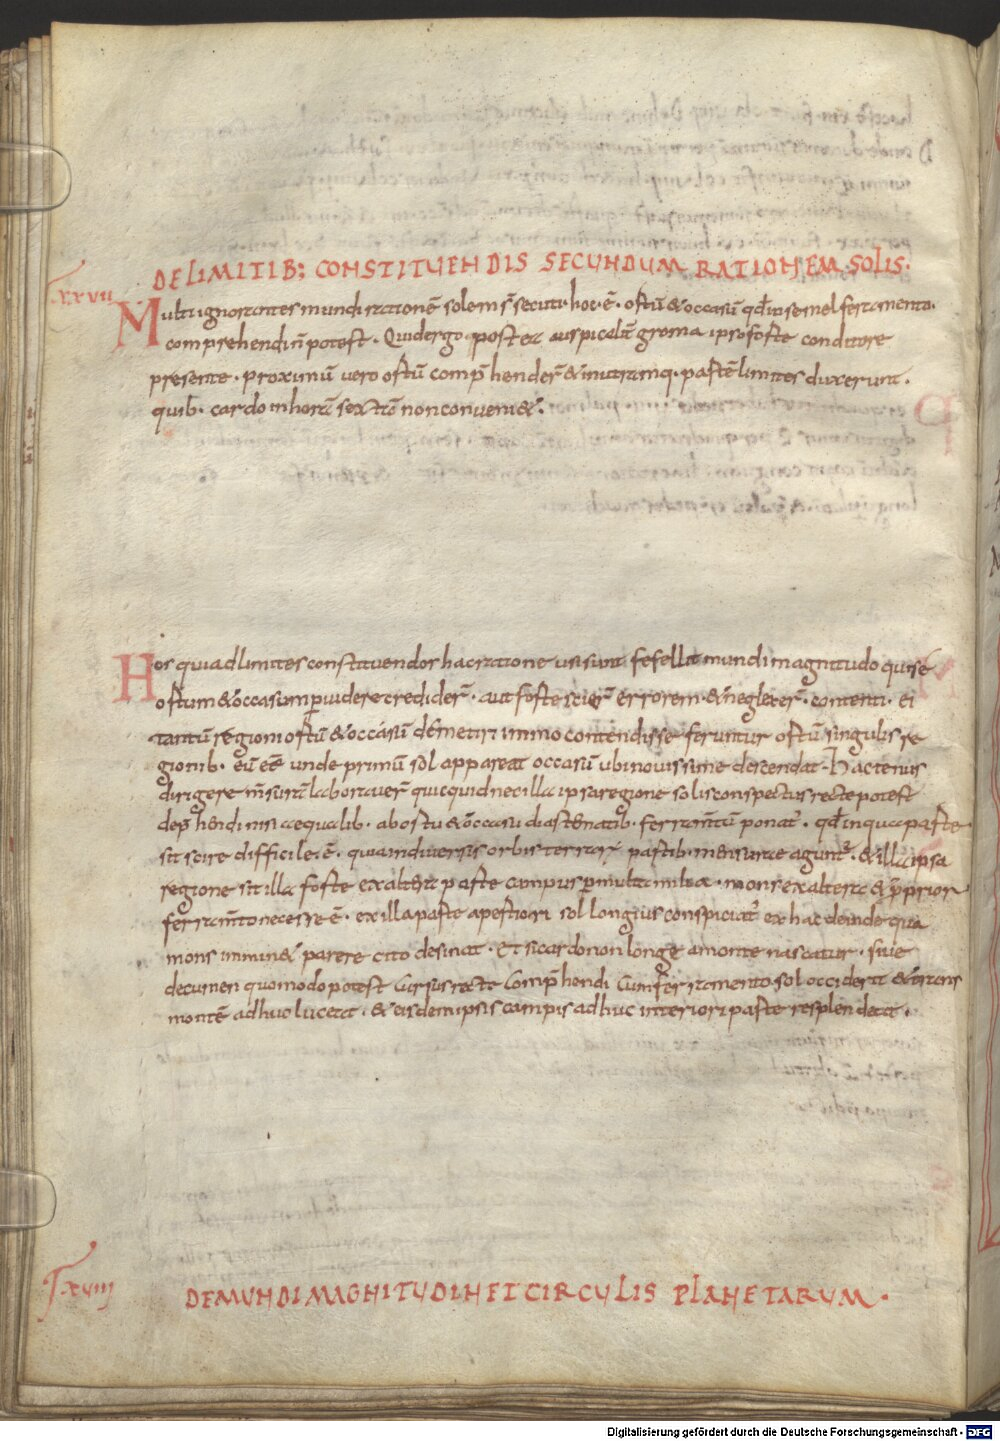 DE LIMITIB: CONSTITUENDIS SECUNDUM RATIONEM SOLIS.
T. xxvii
Multi ignorantes mundi rationē solem s̄ secuti. hoc. ē. ortū & occasū qd̄ in semel ferramento.
comprehendi n̄ potest. Quid ergo posita auspicalit̄ groma ipso forte conditore
presente. proximū vero ortū comp̄hender̄ & in utramq. partē limites duxerunt.
quib. cardo in horā sextā non conveni&.
Hos qui ad limites constituendos hac ratione usi sunt fefellit mundi magnitudo qui se
ortum & occasum p̱videre credider̄. aut forte scier̄ errorem. & neglexer̄. contenti. ei
tantū regioni ortū & occasū demetiri immo contendisse feruntur ortū singulis re
gionib. eū eē unde primū sol appareat occasū ubi novissime descendat. Hactenus
dirigere m̄surā laboraver̄ quicquid nec illa ipsa regione solis conspectus recte potest
dep̄hendi nisi aequalib. ab ortu & occasu diastematib. ferram̄tū ponat̄. qd̄ in qua parte
sit scire difficile. ē. quia in diversis orbis terrar̄ partib. mensurae agunt̄. & illa ipsa
regione sit illa forte ex altera parte campus p̱ multa milia. mons ex altera & p̱prior
ferram̄to necesse ē. ex illa parte apertiori sol longius conspiciat̄ ex hac deinde qua
mons immin& parere cito desinat. Et si cardo non longe a monte nascatur. sive
decumen quomodo potest Cursus recte Comp̄hendi Cum ferramento sol occiderit & trans
montē adhuc luceat. & eisdem ipsis campis adhuc interiori parte resplendeat.
T. xviii
DE MUNDI MAGNITUDINE ET CIRCULIS PLANETARUM.
Digitalisierung gefördert durch die Deutsche Forschungsgemeinschaft - DFG